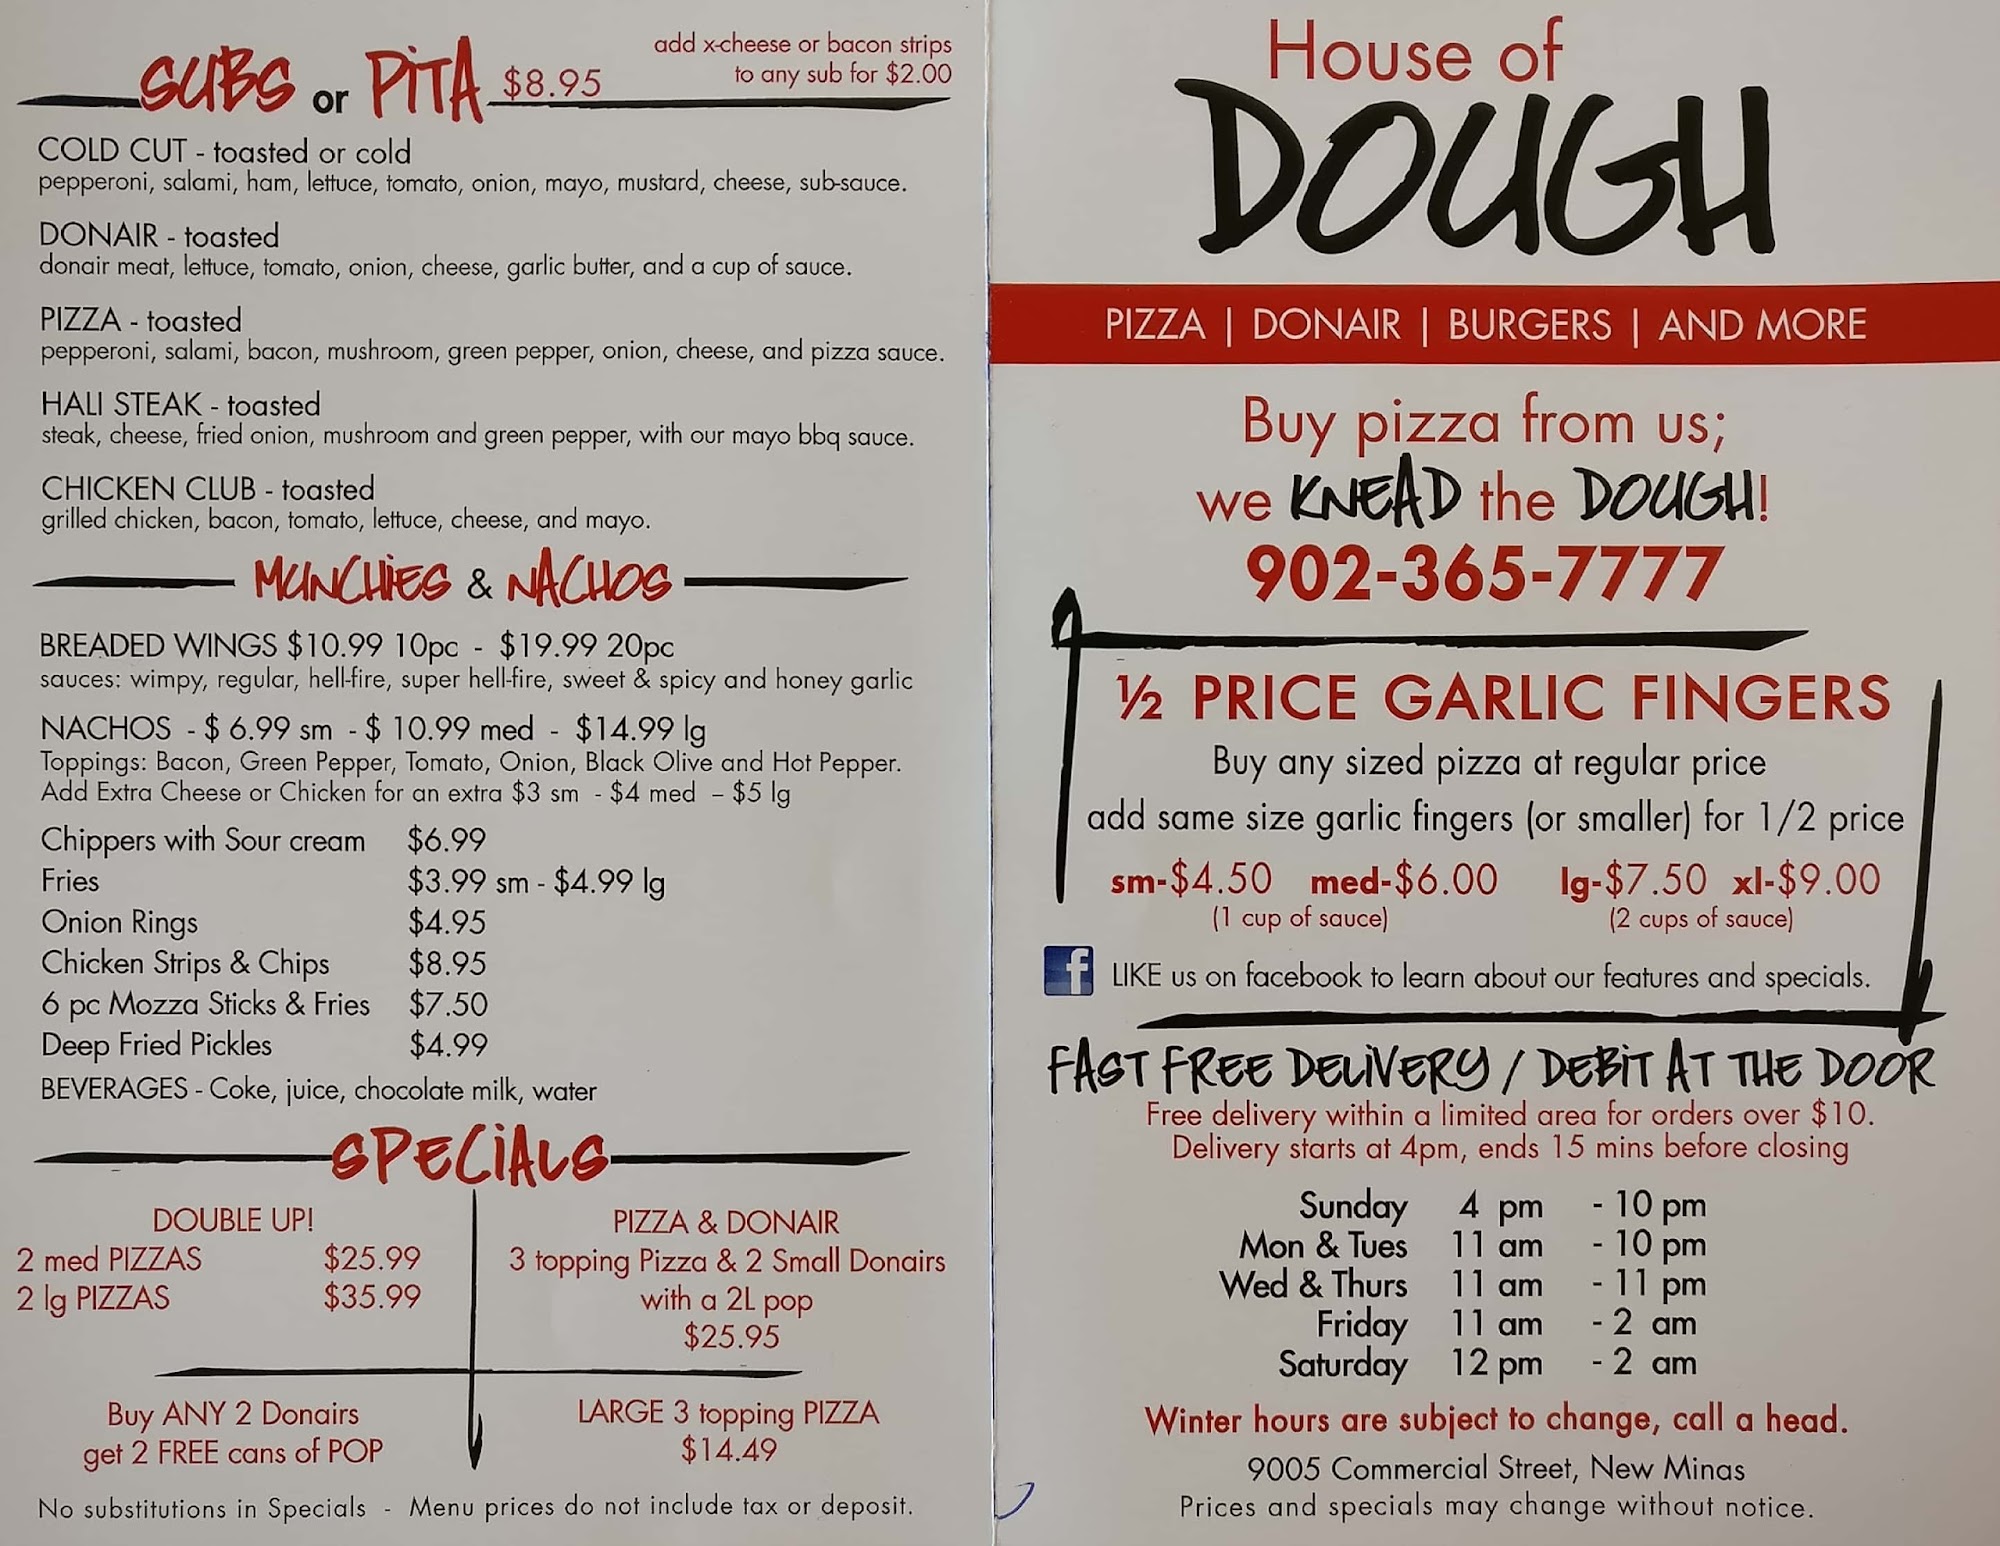 SUBS or PITA $8.95
add x-cheese or bacon strips
to any sub for $2.00
COLD CUT - toasted or cold
pepperoni, salami, ham, lettuce, tomato, onion, mayo, mustard, cheese, sub-sauce.
DONAIR - toasted
donair meat, lettuce, tomato, onion, cheese, garlic butter, and a cup of sauce.
PIZZA - toasted
pepperoni, salami, bacon, mushroom, green pepper, onion, cheese, and pizza sauce.
HALI STEAK - toasted
steak, cheese, fried onion, mushroom and green pepper, with our mayo bbq sauce.
CHICKEN CLUB - toasted
grilled chicken, bacon, tomato, lettuce, cheese, and mayo.
MUNCHIES & NACHOS
BREADED WINGS $10.99 10pc - $19.99 20pc
sauces: wimpy, regular, hell-fire, super hell-fire, sweet & spicy and honey garlic
NACHOS - $ 6.99 sm - $ 10.99 med - $14.99 lg
Toppings: Bacon, Green Pepper, Tomato, Onion, Black Olive and Hot Pepper.
Add Extra Cheese or Chicken for an extra $3 sm - $4 med – $5 lg
Chippers with Sour cream $6.99
Fries $3.99 sm - $4.99 lg
Onion Rings $4.95
Chicken Strips & Chips $8.95
6 pc Mozza Sticks & Fries $7.50
Deep Fried Pickles $4.99
BEVERAGES - Coke, juice, chocolate milk, water
SPECIALS
DOUBLE UP!
2 med PIZZAS $25.99
2 lg PIZZAS $35.99
PIZZA & DONAIR
3 topping Pizza & 2 Small Donairs
with a 2L pop
$25.95
Buy ANY 2 Donairs
get 2 FREE cans of POP
LARGE 3 topping PIZZA
$14.49
No substitutions in Specials - Menu prices do not include tax or deposit.
House of
DOUGH
PIZZA | DONAIR | BURGERS | AND MORE
Buy pizza from us;
we KNEAD the DOUGH!
902-365-7777
½ PRICE GARLIC FINGERS
Buy any sized pizza at regular price
add same size garlic fingers (or smaller) for 1/2 price
sm-$4.50 med-$6.00 lg-$7.50 xl-$9.00
(1 cup of sauce) (2 cups of sauce)
f LIKE us on facebook to learn about our features and specials.
FAST FREE DELIVERY / DEBIT AT THE DOOR
Free delivery within a limited area for orders over $10.
Delivery starts at 4pm, ends 15 mins before closing
Sunday 4 pm - 10 pm
Mon & Tues 11 am - 10 pm
Wed & Thurs 11 am - 11 pm
Friday 11 am - 2 am
Saturday 12 pm - 2 am
Winter hours are subject to change, call a head.
9005 Commercial Street, New Minas
Prices and specials may change without notice.